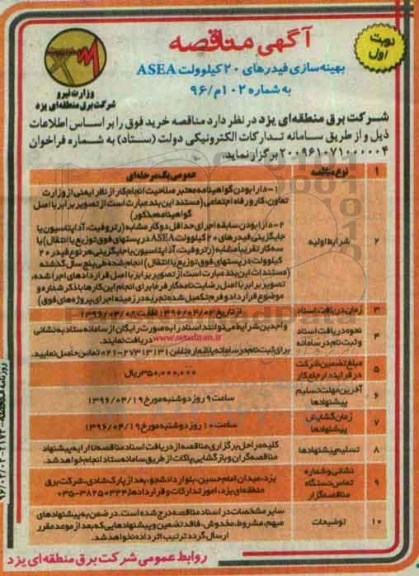 نوبت اول
آگهی مناقصه
بهینه‌سازی فیدرهای ۲۰ کیلوولت ASEA
به شماره ۱۰۲م/۹۶
وزارت نیرو
شرکت برق منطقه‌ای یزد
شرکت برق منطقه‌ای یزد در نظر دارد مناقصه خرید فوق را بر اساس اطلاعات
ذیل و از طریق سامانه تدارکات الکترونیکی دولت (ستاد) به شماره فراخوان
۲۰۰۹۶۱۰۷۱۰۰۰۰۰۴ برگزار نماید.
۱ نوع مناقصه عمومی یک مرحله‌ای
۲ شرایط اولیه
۱- دارا بودن گواهینامه معتبر صلاحیت انجام کار از نظر ایمنی از وزارت
تعاون، کار و رفاه اجتماعی (مستند این بند عبارت است از تصویر برابر با اصل
گواهینامه مذکور)
۲- دارا بودن سابقه اجرای حداقل دو کار مشابه (رتروفیت، آداپتاسیون یا
جایگزینی فیدرهای ۲۰ کیلوولت ASEA در پستهای فوق توزیع یا انتقال) یا
سه کار تقریباً مشابه (رتروفیت، آداپتاسیون یا جایگزینی هر نوع فیدر ۲۰
کیلوولت در پستهای فوق توزیع یا انتقال) انجام شده طی پنج سال گذشته
(مستندات این بند عبارت است از تصویر برابر با اصل قراردادهای اجرا شده،
تصویر برابر با اصل رضایت‌نامه کارفرما برای انجام این کارها با ذکر شماره و
موضوع قرارداد و فرم تکمیل شده تجربه در زمینه اجرای پروژه‌های فوق)
۳ زمان دریافت اسناد
۴ نحوه دریافت اسناد و ثبت نام در سامانه
واجدین شرایط می‌توانند اسناد را به صورت رایگان از سامانه ستاد به نشانی
دریافت نمایند.
برای ثبت نام در سامانه با شماره تلفن ۲۷۳۱۳۱۳۱-۰۲۱ تماس حاصل نمایید.
۵ مبلغ تضمین شرکت در فرایند ارجاع کار ۳۵۰,۰۰۰,۰۰۰ ریال
۶ آخرین مهلت تسلیم پیشنهادها ساعت ۹ روز دوشنبه مورخ ۱۳۹۶/۰۴/۱۹
۷ زمان گشایش پیشنهادها ساعت ۱۰ روز دوشنبه مورخ ۱۳۹۶/۰۴/۱۹
۸ تسلیم پیشنهادها
کلیه مراحل برگزاری مناقصه از دریافت اسناد مناقصه تا ارایه پیشنهاد
مناقصه‌گران و بازگشایی پاکات از طریق سامانه ستاد انجام خواهد شد.
۹ نشانی و شماره تماس دستگاه مناقصه‌گزار
یزد، میدان امام حسین، بلوار دانشجو، بعد از پارک شادی، شرکت برق
منطقه‌ای یزد، امور تدارکات و قراردادها ۳۸۲۵۰۳۳۴-۰۳۵
۱۰ توضیحات
سایر مشخصات در اسناد مناقصه درج شده است. در ضمن به پیشنهادهای
مبهم، مشروط، مخدوش، فاقد تضمین و پیشنهادهایی که بعد از موعد مقرر
ارسال گردد ترتیب اثر داده نخواهد شد.
روابط عمومی شرکت برق منطقه‌ای یزد